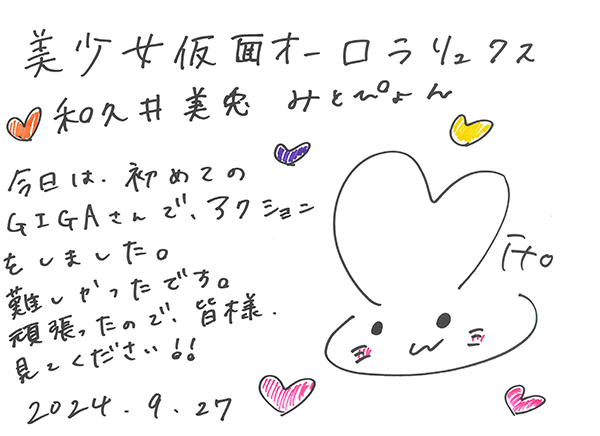 美少女仮面オーロラリュクス
和久井美兎 みとぴょん
今日は、初めての
GIGAさんで、アクション
をしました。
難しかったです。
頑張ったので、皆様、
見てください!!
2024.9.27